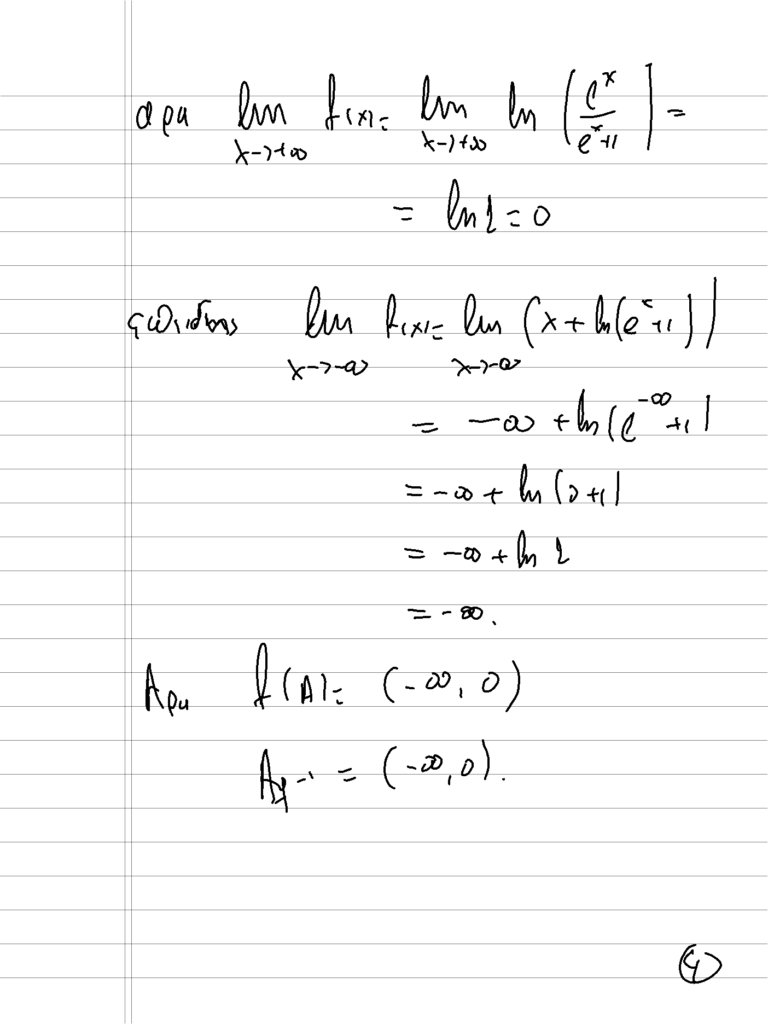 αρα lim x->+∞ f(x) = lim x->+∞ ln (e^x / e^x+1) =
= ln1 = 0
lim x->-∞ f(x) = lim x->-∞ (x + ln(e^x+1))
= -∞ + ln(e^-∞ +1)
= -∞ + ln(0+1)
= -∞ + ln 1
= -∞.
Αρα f(A) = (-∞, 0)
A_f^-1 = (-∞, 0).
4